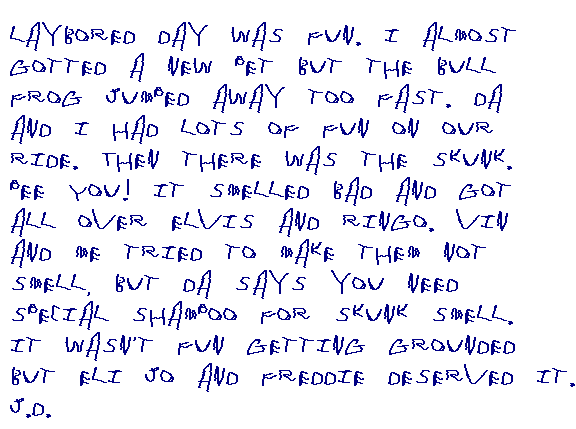 LAYBORED DAY WAS FUN. I ALMOST
GOTTED A NEW PET BUT THE BULL
FROG JUMPED AWAY TOO FAST. DA
AND I HAD LOTS OF FUN ON OUR
RIDE. THEN THERE WAS THE SKUNK.
PEE YOU! IT SMELLED BAD AND GOT
ALL OVER ELVIS AND RINGO. VIN
AND ME TRIED TO MAKE THEM NOT
SMELL, BUT DA SAYS YOU NEED
SPECIAL SHAMPOO FOR SKUNK SMELL.
IT WASN'T FUN GETTING GROUNDED
BUT ELI JO AND FREDDIE DESERVED IT.
J.D.